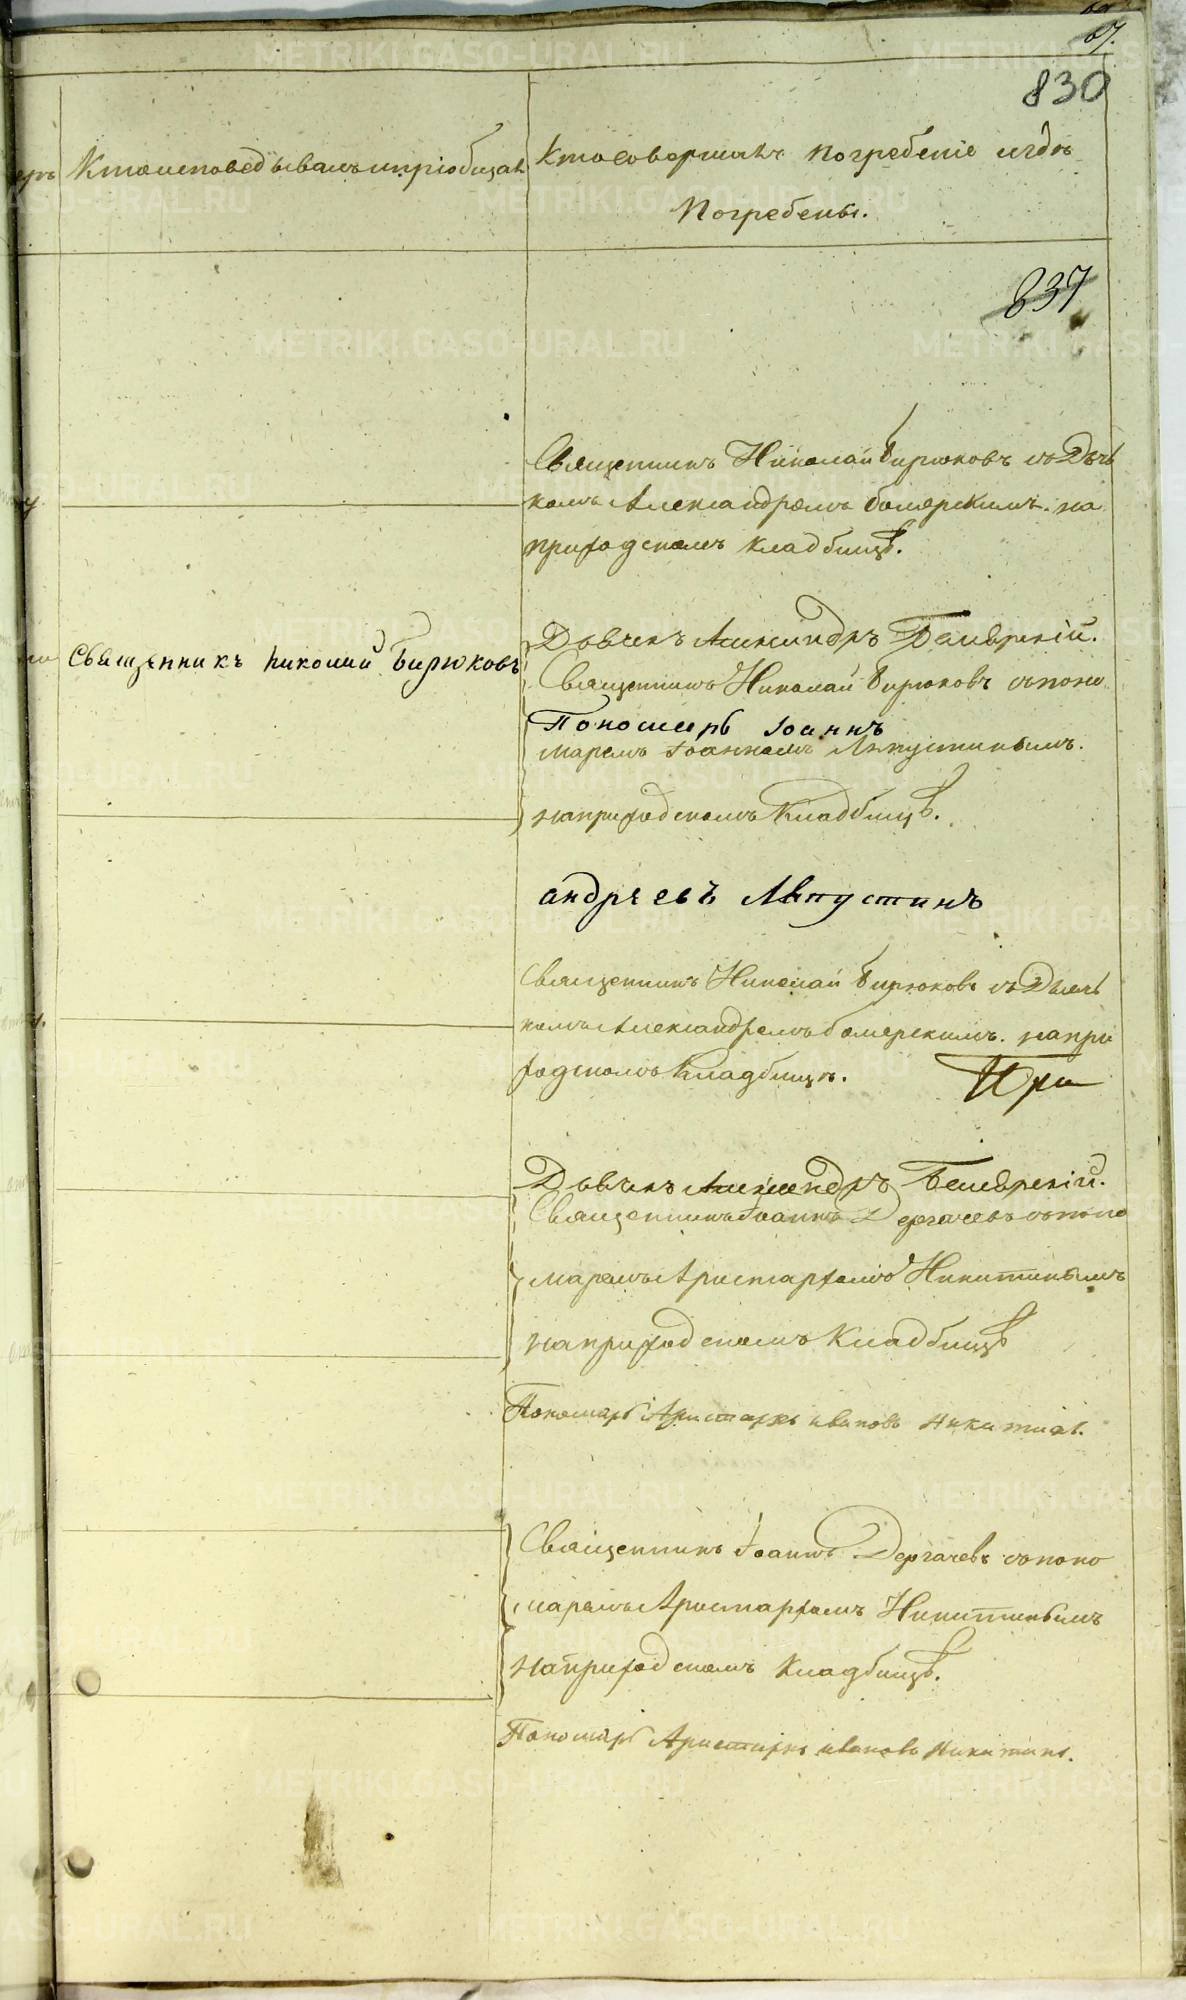 67.
830
Кто исповедывалъ и пріобщалъ
Кто совершалъ погребеніе и гдѣ
Погребены.
837
Священникъ Николай Бирюковъ съ Дьяч
комъ Александромъ на
приходскомъ кладбищѣ.
Священникъ николай Бирюковъ
Дьячекъ Александръ
Священникъ Николай Бирюковъ съ поно
Пономарь Іоаннъ
маремъ Іоанномъ
на приходскомъ кладбищѣ.
андреевъ
Священникъ Николай Бирюковъ съ Дьяч
комъ Александромъ на при
ходскомъ кладбищѣ.
При
Дьячекъ Александръ
Священникъ Іоаннъ Дергачевъ съ поно
маремъ Аристархомъ Никитинымъ
на приходскомъ кладбищѣ
Пономарь Аристархъ ивановъ никитинъ.
Священникъ Іоаннъ Дергачевъ съ поно
маремъ Аристархомъ Никитинымъ
на приходскомъ кладбищѣ.
Пономарь Аристархъ ивановъ никитинъ.
METRIKI.GASO-URAL.RU